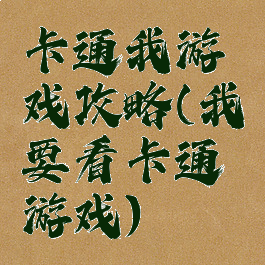 卡通我游
戏攻略(我
要看卡通
游戏)